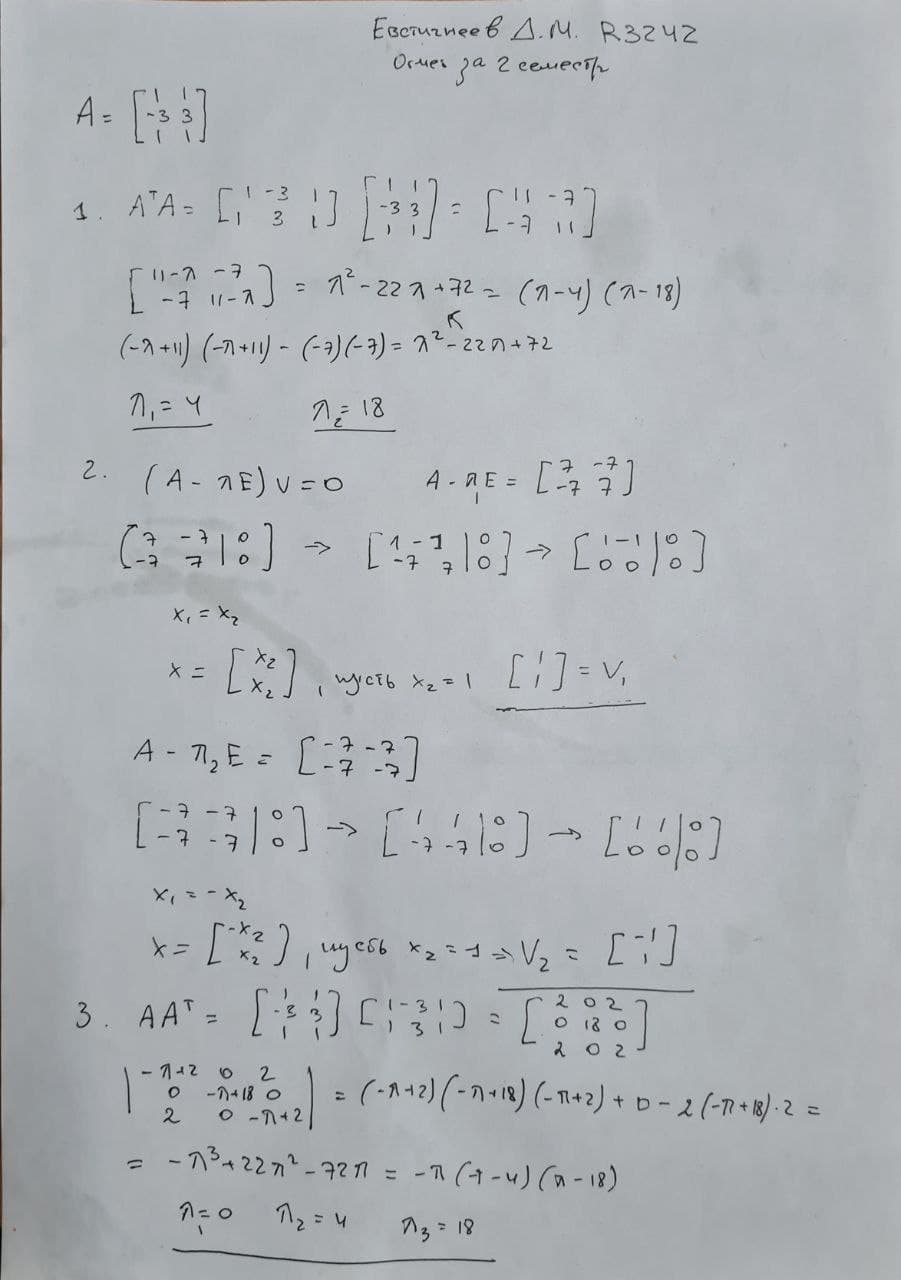 Евстигнеев Д.М. R3242
Осмех за 2 семестр
A = [1 1; -3 3; 1 1]
1. AᵀA = [1 -3 1; 1 3 1] [1 1; -3 3; 1 1] = [11 -7; -7 11]
[11-λ -7; -7 11-λ] = λ² - 22λ + 72 = (λ-4) (λ-18)
(-λ+11) (-λ+11) - (-7)(-7) = λ² - 22λ + 72
λ₁ = 4 λ₂ = 18
2. (A - λE) V = 0 A - λ₁E = [7 -7; -7 7]
[7 -7 | 0; -7 7 | 0] → [1 -1 | 0; -7 7 | 0] → [1 -1 | 0; 0 0 | 0]
x₁ = x₂
x = [x₂; x₂], пусть x₂ = 1 [1; 1] = V₁
A - λ₂E = [-7 -7; -7 -7]
[-7 -7 | 0; -7 -7 | 0] → [1 1 | 0; -7 -7 | 0] → [1 1 | 0; 0 0 | 0]
x₁ = -x₂
x = [-x₂; x₂], пусть x₂ = 1 => V₂ = [-1; 1]
3. AAᵀ = [1 1; -3 3; 1 1] [1 -3 1; 1 3 1] = [2 0 2; 0 18 0; 2 0 2]
|-λ+2 0 2; 0 -λ+18 0; 2 0 -λ+2| = (-λ+2)(-λ+18)(-λ+2) + 0 - 2(-λ+18)·2 =
= -λ³ + 22λ² - 72λ = -λ (λ-4) (λ-18)
λ₁ = 0 λ₂ = 4 λ₃ = 18